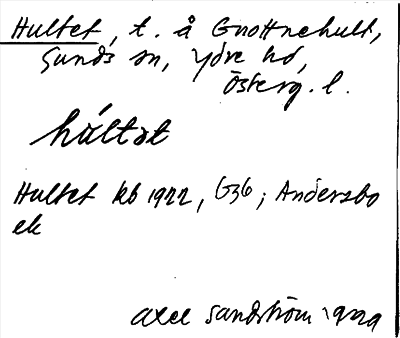 Hultet, t. å Gnottnehult,
Sunds sn, Ydre hd,
Österg. l.
húltət
Hultet kb 1922, G36; Andersbo
ek
Axel Sandström 1929